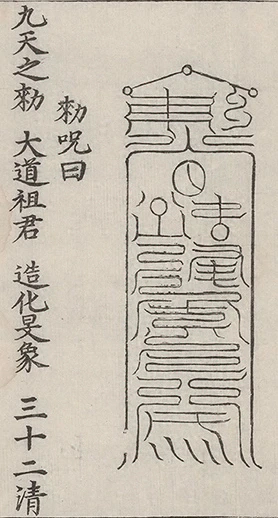 勑呪曰
九天之勑 大道祖君 造化旻象 三十二清